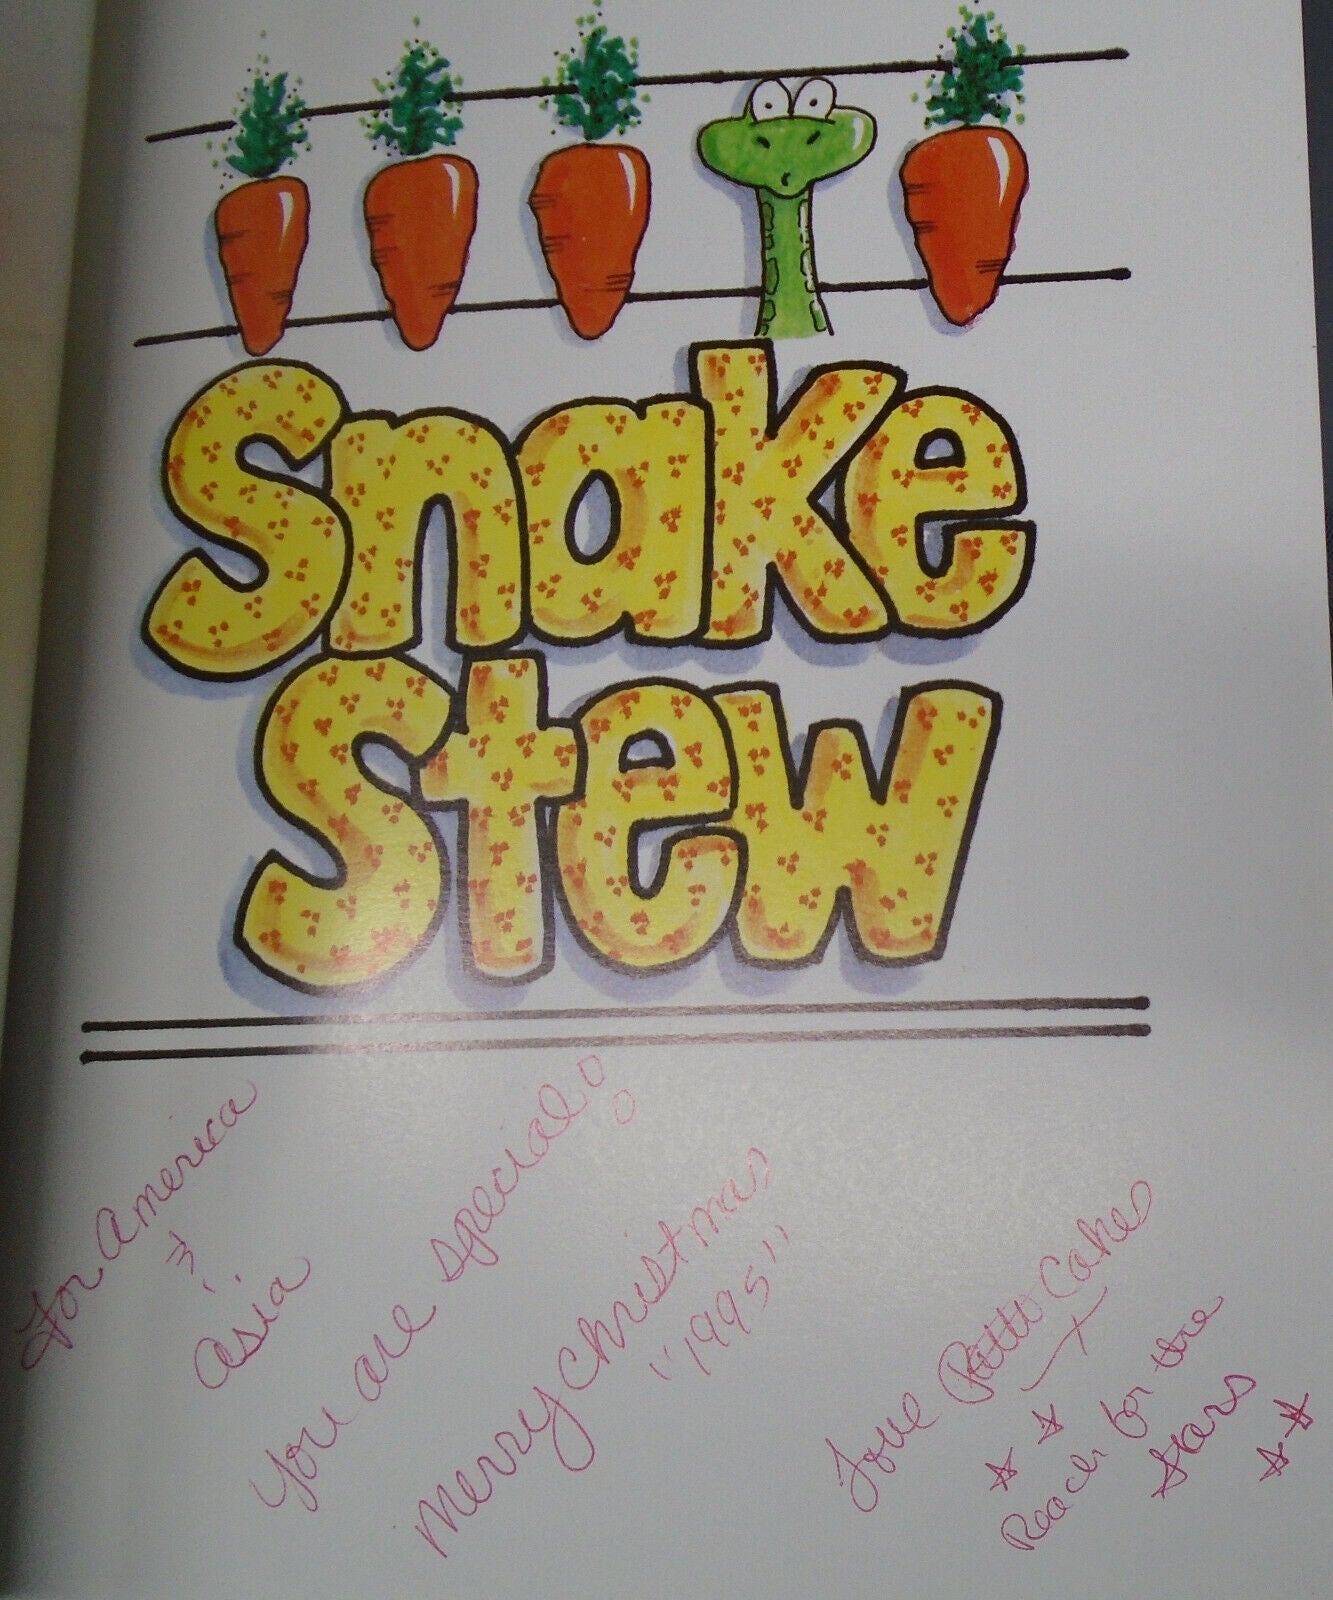 Snake
Stew
For America
&
Asia
You are special!!
Merry Christmas
"1995"
Love Patti Cakes
Reach for the
Stars